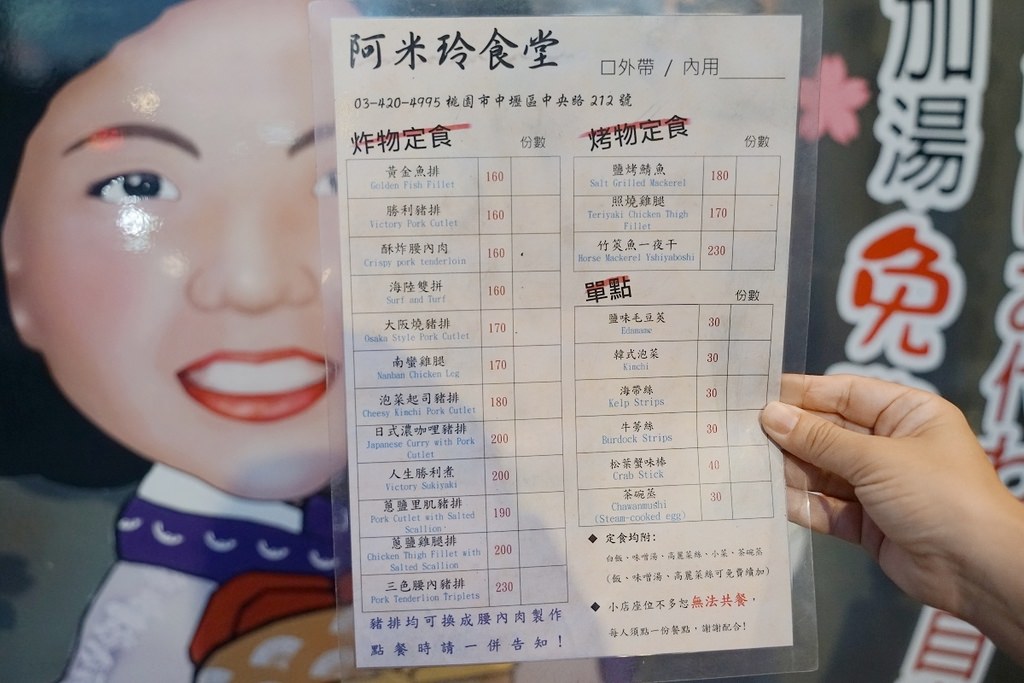 阿米玲食堂
口外帶 / 內用
03-420-4995 桃園市中壢區中央路 212 號
炸物定食 份數
黃金魚排 160
Golden Fish Fillet
勝利豬排 160
Victory Pork Cutlet
酥炸腰內肉 160
Crispy pork tenderloin
海陸雙拼 160
Surf and Turf
大阪燒豬排 170
Osaka Style Pork Cutlet
南蠻雞腿 170
Nanban Chicken Leg
泡菜起司豬排 180
Cheesy Kimchi Pork Cutlet
日式濃咖哩豬排 200
Japanese Curry with Pork
Cutlet
人生勝利煮 200
Victory Sukiyaki
蔥鹽里肌豬排 190
Pork Cutlet with Salted
Scallion
蔥鹽雞腿排 200
Chicken Thigh Fillet with
Salted Scallion
三色腰內豬排 230
Pork Tenderlion Triplets
豬排均可換成腰內肉製作
點餐時請一併告知！
烤物定食 份數
鹽烤鯖魚 180
Salt Grilled Mackerel
照燒雞腿 170
Teriyaki Chicken Thigh
Fillet
竹筴魚一夜干 230
Horse Mackerel Yahiyaboshi
單點 份數
鹽味毛豆莢 30
Edamame
韓式泡菜 30
Kimchi
海帶絲 30
Kelp Strips
牛蒡絲 30
Burdock Strips
松葉蟹味棒 40
Crab Stick
茶碗蒸 30
Chawanmushi
(Steam-cooked egg)
◆ 定食均附:
白飯、味噌湯、高麗菜絲、小菜、茶碗蒸
(飯、味噌湯、高麗菜絲可免費續加)
◆ 小店座位不多恕無法共餐，
每人須點一份餐點，謝謝配合!
加湯免